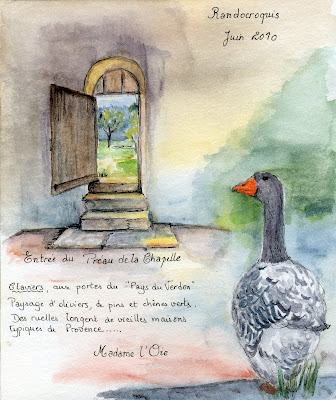 Randocroquis
Juin 2010
Entrée du Préau de la Chapelle
Claviers, aux portes du "Pays du Verdon"
Paysage d'oliviers, de pins et chênes verts.
Des ruelles longent de vieilles maisons
typiques de Provence.....
Madame l'Oie